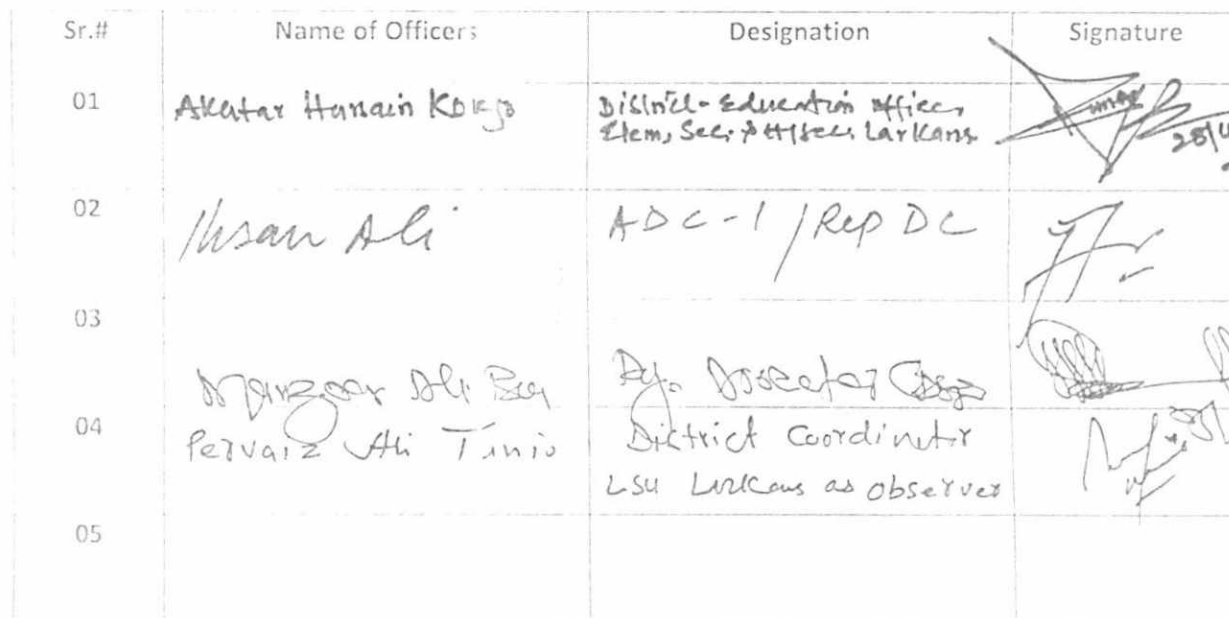 Sr.# Name of Officers Designation Signature
01 Akhtar Hussain District Education Officer
Elem, Sec: & H/Sec: Larkana
28/
02 Ihsan Ali ADC-1 / Rep DC
03
Manzoor Ali Dy. Director
04 Pervaiz Ali Tunio District Coordinator
LSU Larkana as observer
05